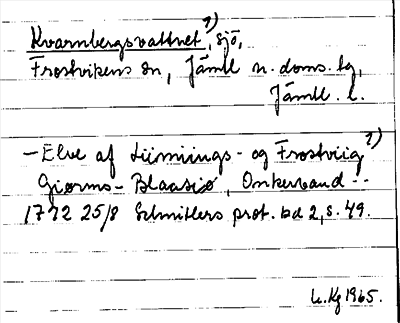 Kvarnbergsvattnet,¹⁾ sjö,
Frostvikens sn, Jämtl n. doms. lg,
Jämtl. l.
– Elve af Liimiings- og Frostviig¹⁾
Giørms- Blaasiø, Onkervand --
1742 25/8 Schnitlers prot. bd 2, s. 49.
1965.